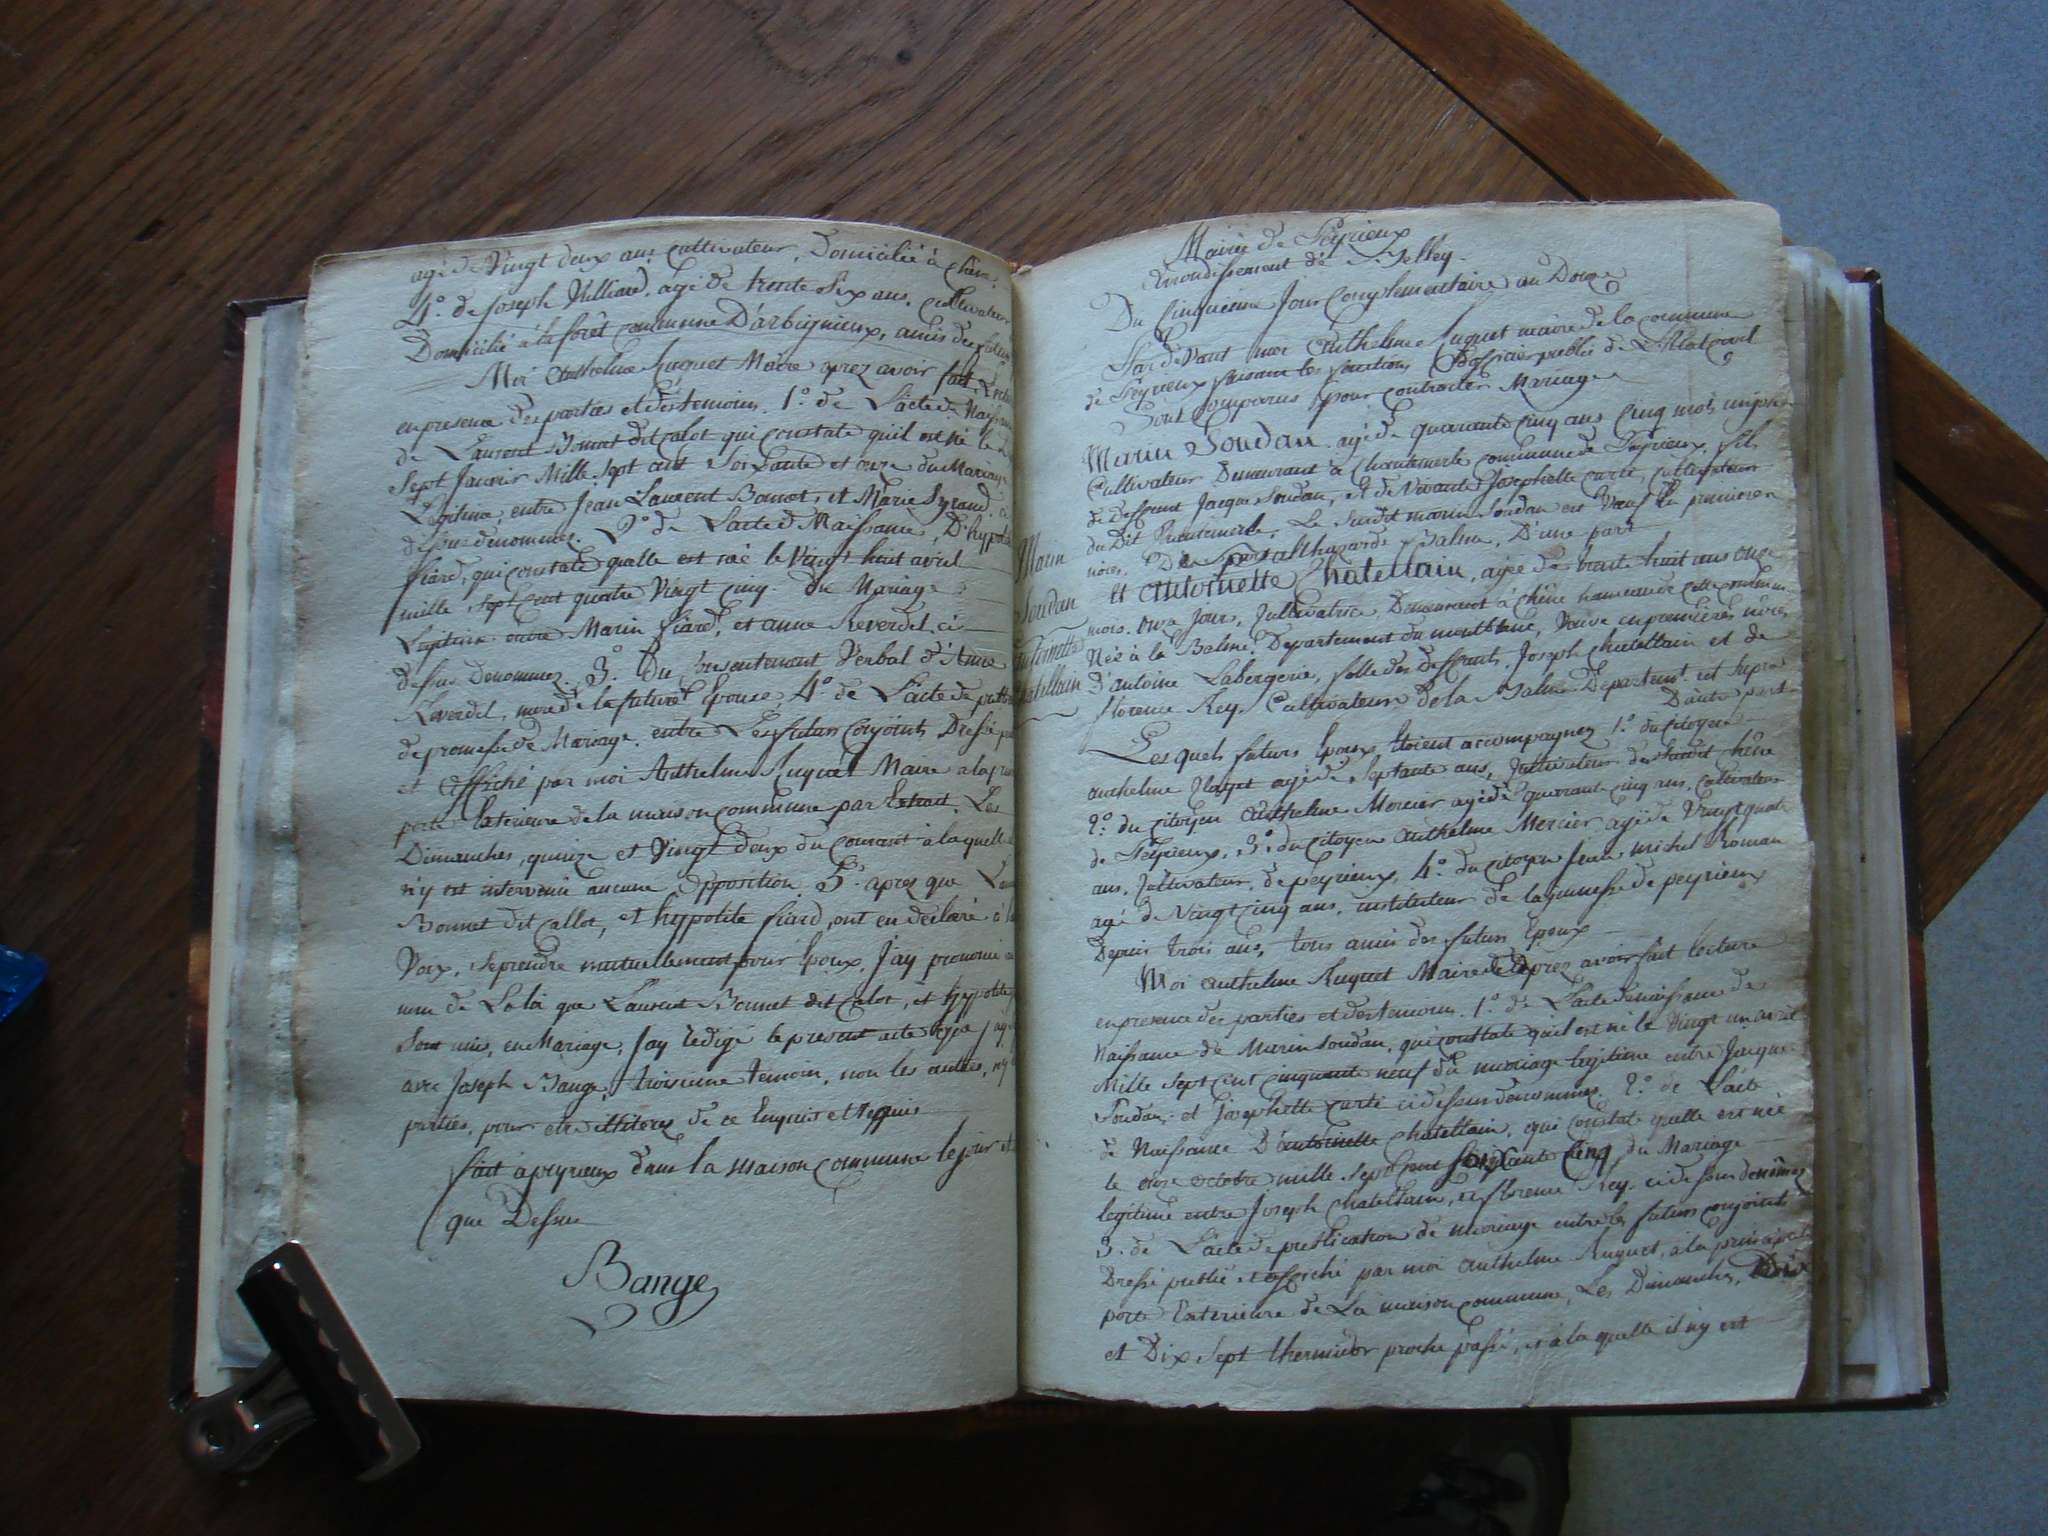 agé de Vingt deux ans cultivateur, Domicilié à Chêne,
4.° de Joseph Billiard, agé de trente Six ans, cultivateur
Domicilié à la forêt commune D'arbignieux, amis des
Moi Anthelme Huguet Maire aprez avoir fait Lecture
en presence des parties et des temoins. 1.° de L'acte de Naissance
de Laurent Bonnet dit Calot qui constate qu'il est né le
Sept Janvier Mille Sept cent Soixante et onze du Mariage
Legitime, entre Jean Laurent Bonnet, et Marie
dessus denommés. 2.° de L'acte de Naissance, D'hypolite
fiard, qui constate qu'elle est née le Vingt huit avril
mille Sept cent quatre Vingt cinq. du Mariage
Legitime entre Marin fiard, et anne Reverdel, ci
dessus Denommez. 3.° Du Consentement Verbal d'Anne
Reverdel, mere de la future Epouse, 4.° de L'acte de
de promesse de Mariage, entre Les futurs Conjoints, Dressé
et affiché par moi Anthelme Huguet Maire a la
porte Exterieure de la maison commune par Extrait, Les
Dimanches, quinze et Vingt deux du Courant à laquelle
n'y est intervenu aucune Opposition. 5.° apres que Laurent
Bonnet dit Callot, et hypolite fiard, ont en déclaré à
Voix, Se prendre mutuellement pour Epoux, J'ay prononcé au
nom de La loi que Laurent Bonnet dit Calot, et hypolite
Sont unis, en Mariage, J'ay redigé le present acte
avec Joseph Bange, troisieme temoin, non les autres, ny
parties, pour etre illiterez de ce Enquis et Requis
fait à peyrieux dans la maison commune le jour et
que Dessus
Bange
Mairie de Peyrieux
arrondissement de Belley.
Du Cinquième Jour Complementaire an Douze
Par devant moi Anthelme Huguet maire de la commune
de Peyrieux faisant les fonctions D'officier public de L'Etat civil
Sont Comparus pour contracter Mariage
Marin Soudan agé de quarante cinq ans Cinq mois
Cultivateur Demeurant à Chantemerle commune de Peyrieux, fils
de Deffunt Jacque Soudan, et de Vivante Josephette Curti, Cultivateurs
du Dit Chantemerle, Le Susdit marin Soudan est Veuf en premieres
noces, De Balme, D'une part
Marin
Soudan
Antoinette
Chatellain
Et Antoinette Chatellain, agée de trente huit ans onze
mois. onze Jours, Cultivatrice Demeurant à Chêne hameau de cette commune
Née à la Balme. Departement du montblanc, Veuve en premières noces
d'antoine Labergerie, fille des deffunts, Joseph Chatellain et de
florence Rey, Cultivateurs de la Balme Departement
D'autre part
Les quels futurs Epoux étoient accompagnez 1.° du Citoyen
anthelme agé de Septante ans, Cultivateur du Susdit Chêne
2.° du Citoyen Anthelme Mercier agé de quarante Cinq ans, Cultivateur
de Peyrieux, 3.° du Citoyen Anthelme Mercier agé de Vingt quatre
ans, Cultivateur, de peyrieux, 4.° du Citoyen Jean Michel Roman
agé de Vingt Cinq ans, instituteur de la jeunesse de peyrieux
Depuis trois ans, tous amis des futurs Epoux
Moi Anthelme Huguet Maire Aprez avoir fait lecture
en presence des parties et des temoins. 1.° de L'acte de naissance de
Naissance de Marin Soudan, qui constate qu'il est né le Vingt un avril
Mille Sept cent cinquante neuf du mariage legitime entre Jacque
Soudan, et Josephette Curti ci dessus denommez. 2.° de L'acte
de Naissance D'antoinette Chatellain, qui constate qu'elle est née
le onze octobre mille Sept Cent Soixante Cinq du Mariage
legitime entre Joseph Chatellain, et florence Rey, ci dessus denômez
3.° de L'acte de publication de mariage entre les futurs conjoints
Dressé publié et affiché par moi Anthelme Huguet, à la principale
porte Exterieure de La maison commune, Les Dimanches, Dix
et Dix Sept thermidor proche passé, et à la quelle il n'y est